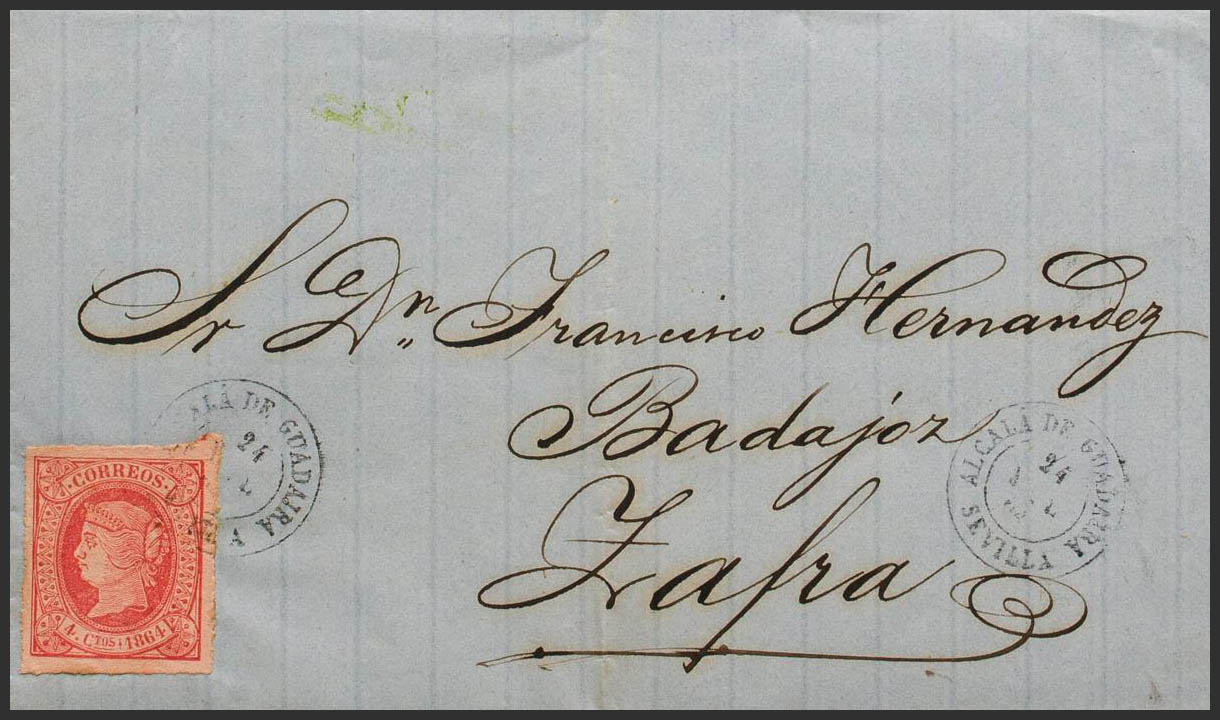 Sr Dn Francisco Hernandez
Badajóz
Zafra
CORREOS
4. CTOS 1864
ALCALÁ DE GUADAIRA
24
ALCALÁ DE GUADAIRA
24
SEVILLA